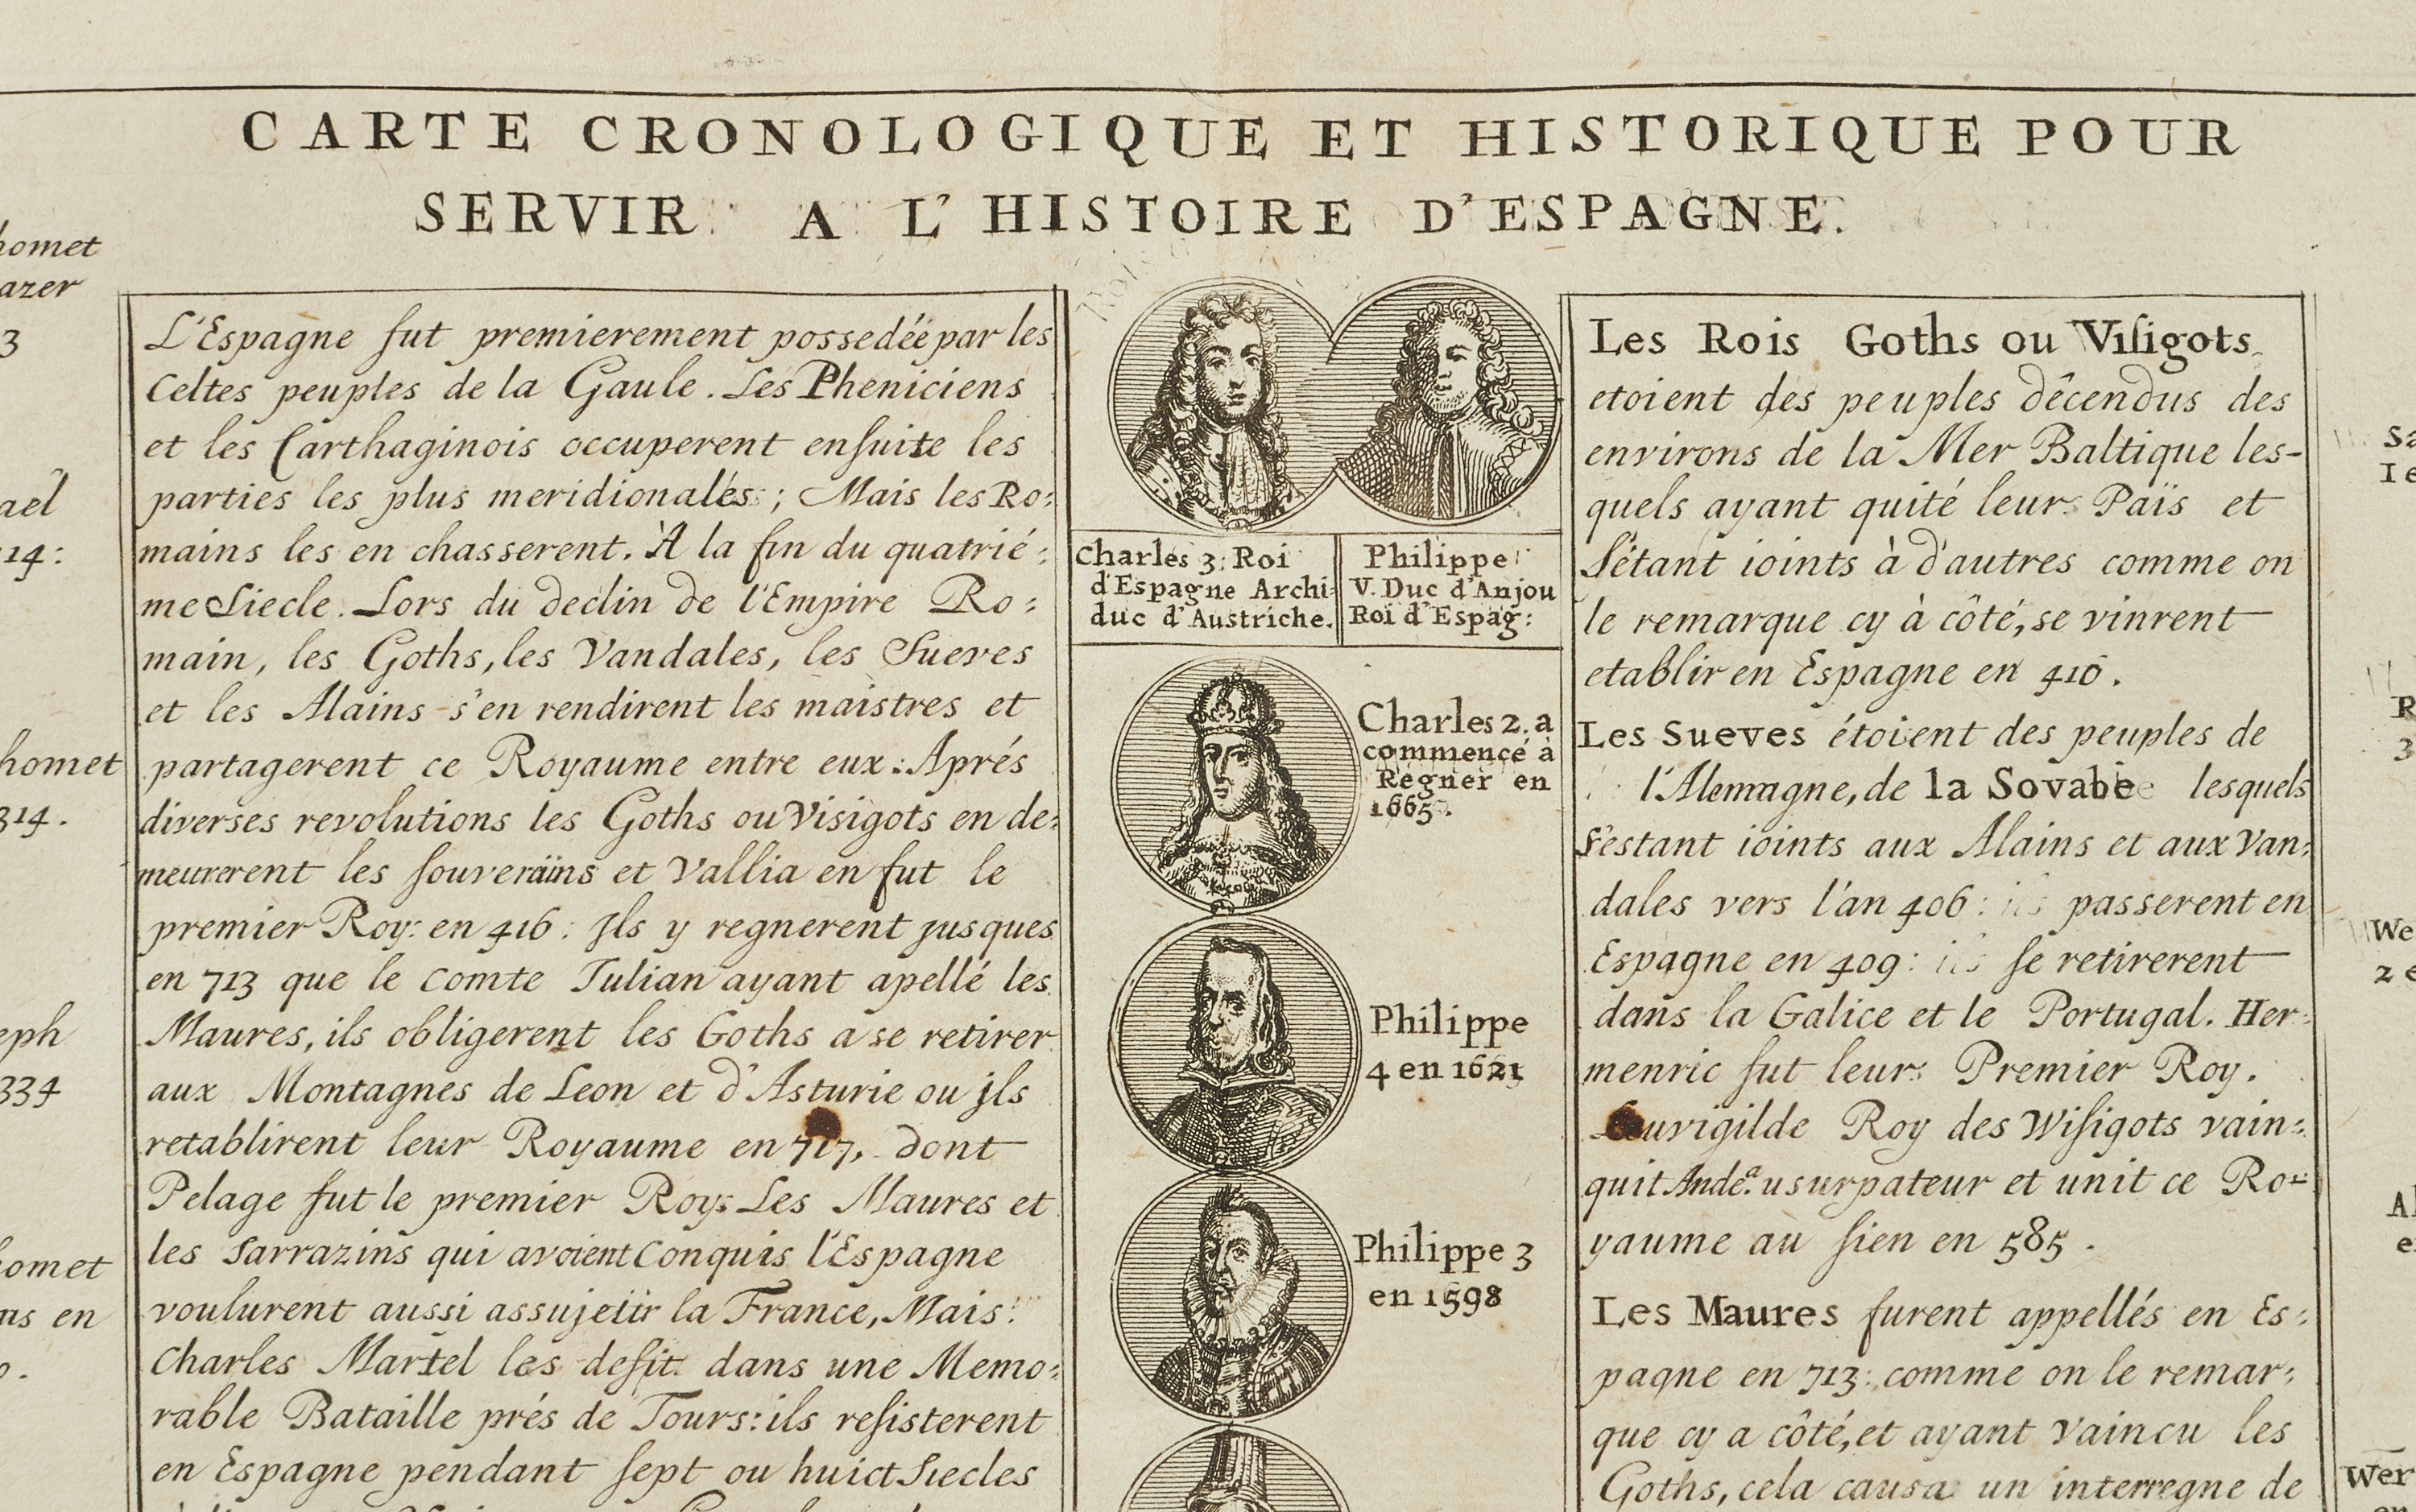 CARTE CRONOLOGIQUE ET HISTORIQUE POUR
SERVIR A L'HISTOIRE D'ESPAGNE.
homet
azer
3
ael
14:
homet
314.
eph
334
homet
ns en
L'Espagne fut premierement possedée par les
Celtes peuples de la Gaule. Les Pheniciens
et les Carthaginois occuperent ensuite les
parties les plus meridionales; Mais les Ro:
mains les en chasserent. A la fin du quatrié:
me Siecle. Lors du declin de l'Empire Ro:
main, les Goths, les Vandales, les Sueves
et les Alains s'en rendirent les maistres et
partagerent ce Royaume entre eux: Aprés
diverses revolutions les Goths ou Visigots en de:
meurerent les souverains et Vallia en fut le
premier Roy: en 416: Ils y regnerent jusques
en 713 que le Comte Iulian ayant apellé les
Maures, ils obligerent les Goths a se retirer
aux Montagnes de Leon et d'Asturie ou jls
retablirent leur Royaume en 717, dont
Pelage fut le premier Roy: Les Maures et
les Sarrazins qui avoient Conquis l'Espagne
voulurent aussi assujetir la France, Mais
Charles Martel les defit dans une Memo:
rable Bataille prés de Tours: ils resisterent
en Espagne pendant sept ou huict Siecles
Charles 3: Roi
d'Espagne Archi:
duc d'Austriche.
Philippe
V. Duc d'Anjou
Roi d'Espag:
Charles 2. a
commencé à
Regner en
1665.
Philippe
4 en 1621
Philippe 3
en 1598
Les Rois Goths ou Visigots
etoient des peuples dêcendus des
environs de la Mer Baltique les-
quels ayant quité leur Païs et
s'étant ioints à d'autres comme on
le remarque cy à côté, se vinrent
etablir en Espagne en 410.
Les Sueves étoient des peuples de
l'Alemagne, de la Sovabe lesquels
s'estant ioints aux Alains et aux Van:
dales vers l'an 406: ils passerent en
Espagne en 409: ils se retirerent
dans la Galice et le Portugal. Her:
menric fut leur Premier Roy.
Leuvigilde Roy des Wisigots vain:
quit Andeª. usurpateur et unit ce Ro:
yaume au sien en 585.
Les Maures furent appellés en Es:
pagne en 713: comme on le remar:
que cy a côté, et ayant vaincu les
Goths, cela causa un interregne de
Sa
1e
R
3
We
2 e
Al
e
Wer